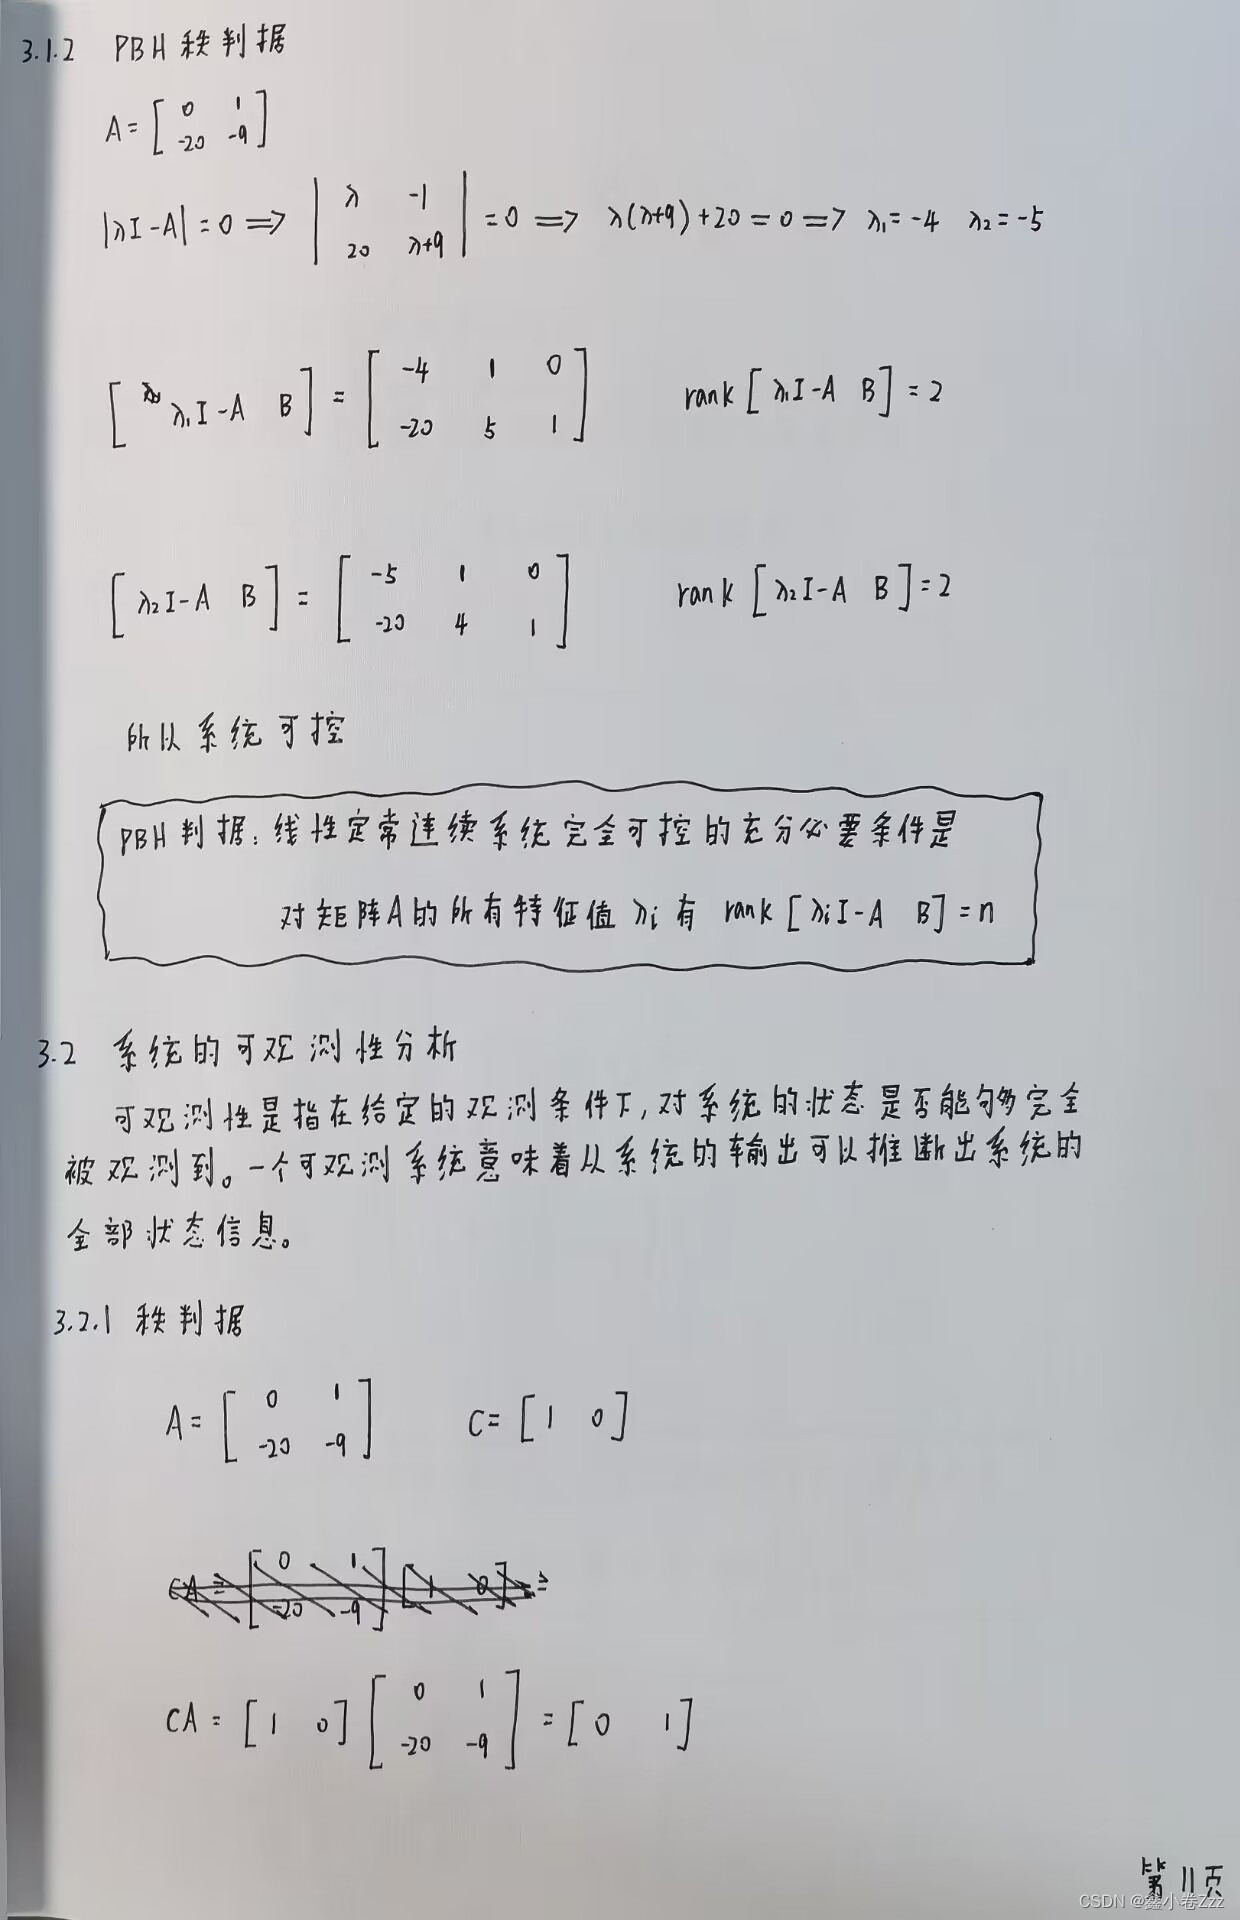 3.1.2 PBH秩判据
A = [ 0 1
-20 -9 ]
|λI-A| = 0 ⟹ | λ -1
20 λ+9 | = 0 ⟹ λ(λ+9)+20=0 ⟹ λ₁=-4 λ₂=-5
[ λ₁I-A B ] = [ -4 1 0
-20 5 1 ] rank[λ₁I-A B]=2
[ λ₂I-A B ] = [ -5 1 0
-20 4 1 ] rank[λ₂I-A B]=2
所以系统可控
PBH判据:线性定常连续系统完全可控的充分必要条件是
对矩阵A的所有特征值λi有 rank[λiI-A B]=n
3.2 系统的可观测性分析
可观测性是指在给定的观测条件下,对系统的状态是否能够完全
被观测到。一个可观测系统意味着从系统的输出可以推断出系统的
全部状态信息。
3.2.1 秩判据
A = [ 0 1
-20 -9 ] C = [ 1 0 ]
CA = [ 0 1
-20 -9 ] [ 1 0 ] =
CA = [ 1 0 ] [ 0 1
-20 -9 ] = [ 0 1 ]
第11页
CSDN @鑫小卷Zzz